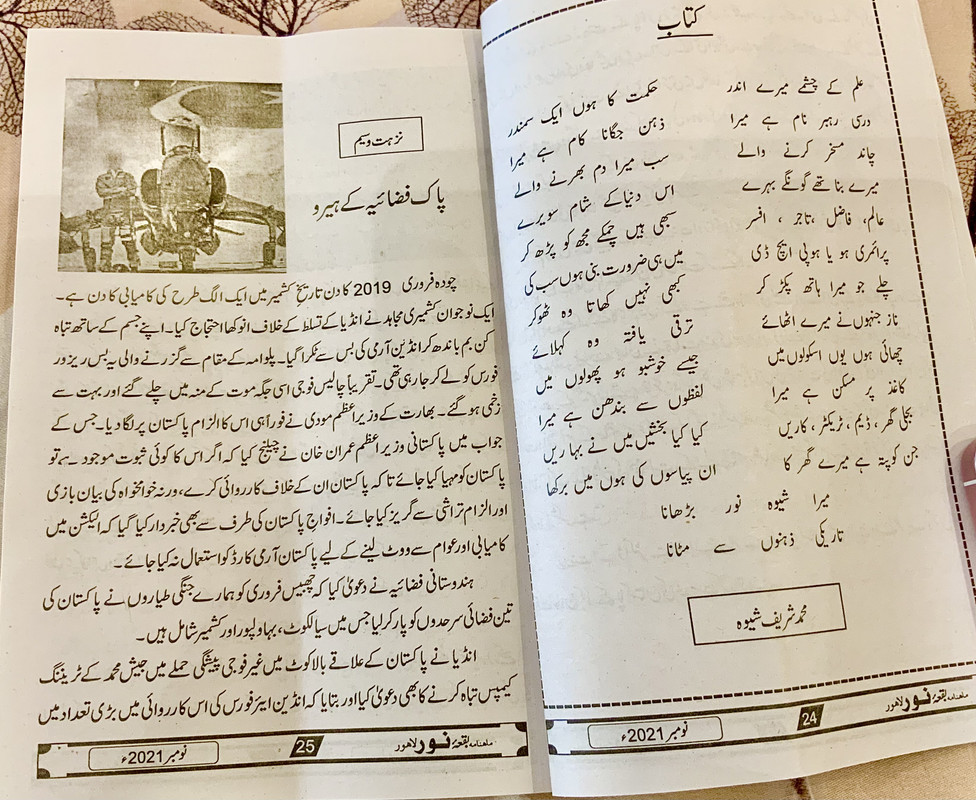 کتاب
علم کے چشمے میرے اندر حکمت کا ہوں ایک سمندر
درسی رہبر نام ہے میرا ذہن جگانا کام ہے میرا
چاند مسخر کرنے والے سب میرا دم بھرنے والے
میرے بنا تھے گونگے بہرے اس دنیا کے شام سویرے
عالم، فاضل ،تاجر ، افسر سبھی ہیں چمکے مجھ کو پڑھ کر
پرائمری ہو یا ہو پی ایچ ڈی میں ہی ضرورت بنی ہوں سب کی
چلے جو میرا ہاتھ پکڑ کر کبھی نہیں کھاتا وہ ٹھوکر
ناز جنہوں نے میرے اٹھائے ترقی یافتہ وہ کہلائے
چھائی ہوں یوں اسکولوں میں جیسے خوشبو ہو پھولوں میں
کاغذ پر مسکن ہے میرا لفظوں سے بندھن ہے میرا
بجلی گھر، ڈیم، ٹریکٹر، کاریں کیا کیا بخشیں میں نے بہاریں
جن کو پتہ ہے میرے گھر کا ان پیاسوں کی ہوں میں برکھا
میرا شیوہ نور بڑھانا
تاریکی ذہنوں سے مٹانا
محمد شریف شیوہ
ماہنامہ بقعۂ نور لاہور 24 نومبر 2021ء
نزہت وسیم
پاک فضائیہ کے ہیرو
چودہ فروری 2019 کا دن تاریخ کشمیر میں ایک الگ طرح کی کامیابی کا دن ہے۔
ایک نوجوان کشمیری مجاہد نے انڈیا کے تسلط کے خلاف انوکھا احتجاج کیا۔ اپنے جسم کے ساتھ تباہ
کن بم باندھ کر انڈین آرمی کی بس سے ٹکرا گیا۔ پلوامہ کے مقام سے گزرنے والی یہ بس ریزور
فورس کو لے کر جا رہی تھی۔ تقریباً چالیس فوجی اسی جگہ موت کے منہ میں چلے گئے اور بہت سے
زخمی ہو گئے۔ بھارت کے وزیر اعظم مودی نے فوراً ہی اس کا الزام پاکستان پر لگا دیا۔ جس کے
جواب میں پاکستانی وزیر اعظم عمران خان نے چیلنج کیا کہ اگر اس کا کوئی ثبوت موجود ہے تو
پاکستان کو مہیا کیا جائے تاکہ پاکستان ان کے خلاف کارروائی کرے، ورنہ خوامخواہ کی بیان بازی
اور الزام تراشی سے گریز کیا جائے۔ افواج پاکستان کی طرف سے بھی خبردار کیا گیا کہ الیکشن میں
کامیابی اور عوام سے ووٹ لینے کے لیے پاکستان آرمی کارڈ کو استعمال نہ کیا جائے۔
ہندوستانی فضائیہ نے دعویٰ کیا کہ چھبیس فروری کو ہمارے جنگی طیاروں نے پاکستان کی
تین فضائی سرحدوں کو پار کر لیا جس میں سیالکوٹ، بہاولپور اور کشمیر شامل ہیں۔
انڈیا نے پاکستان کے علاقے بالاکوٹ میں غیر فوجی پیشگی حملے میں جیش محمد کے ٹریننگ
کیمپس تباہ کرنے کا بھی دعویٰ کیا اور بتایا کہ انڈین ایئر فورس کی اس کارروائی میں بڑی تعداد میں
ماہنامہ بقعۂ نور لاہور 25 نومبر 2021ء